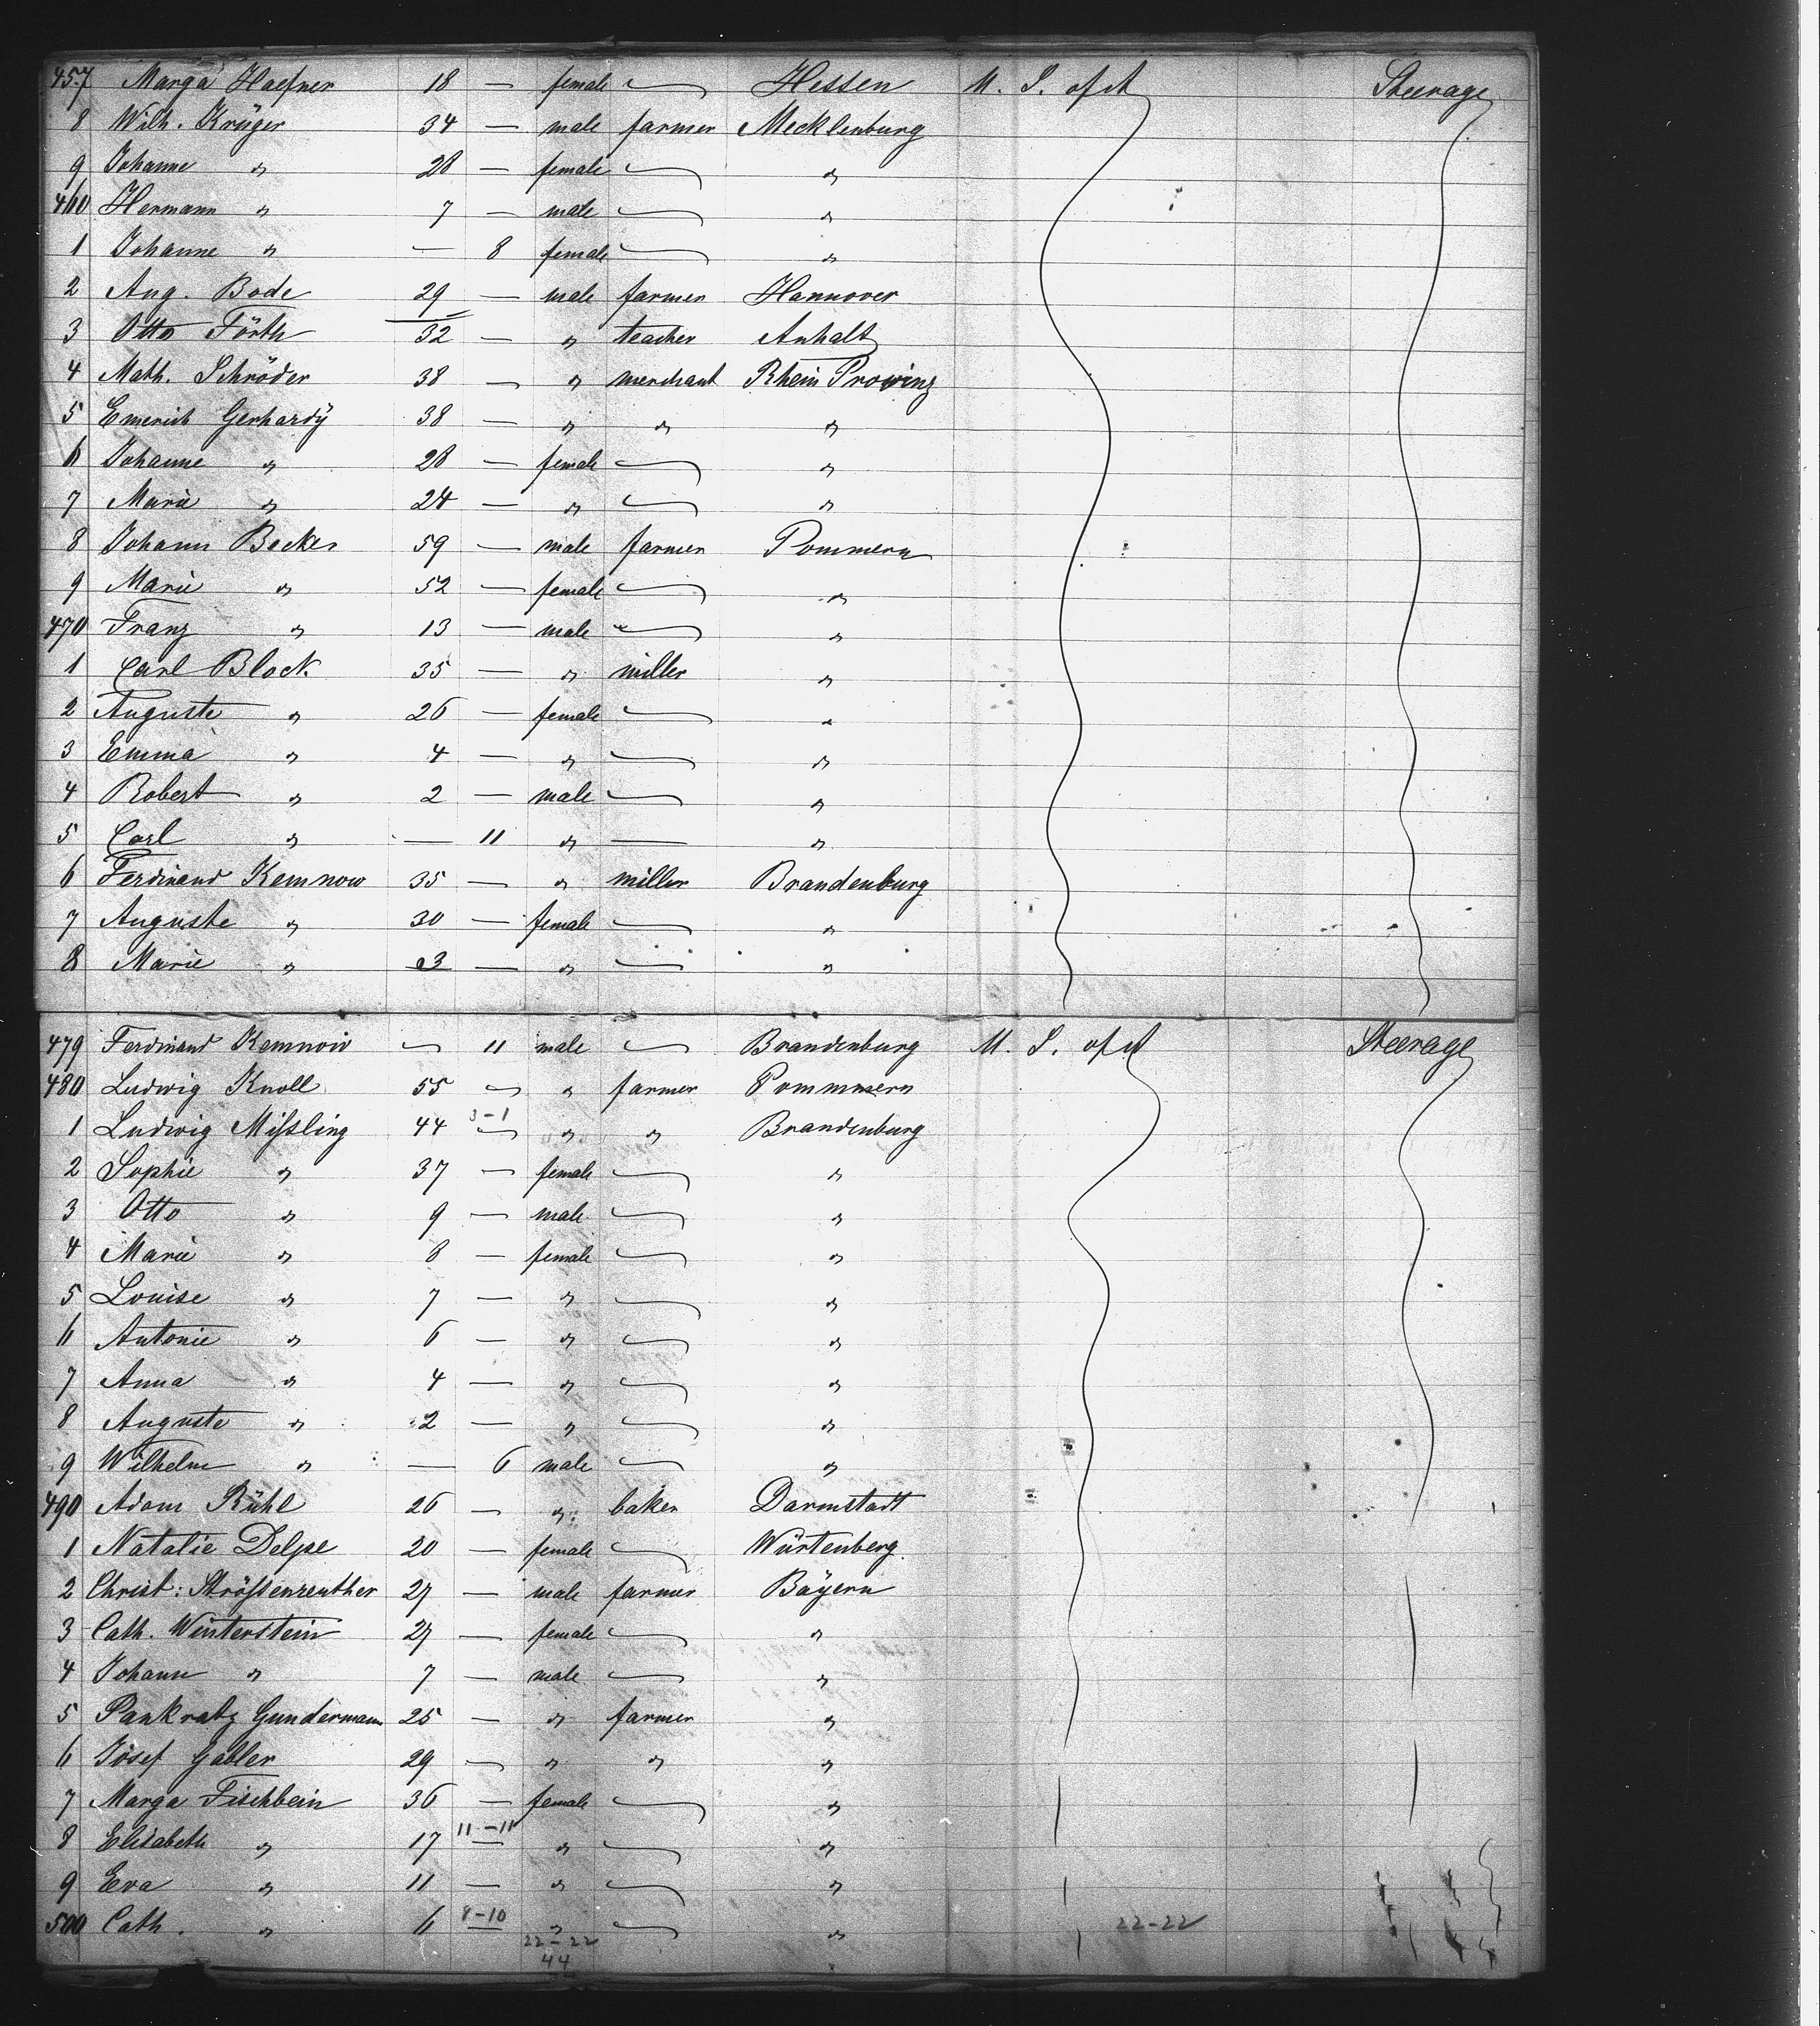 457 Marga Haefner 18 — female — Hessen U. S. of A Steerage
8 Wilh. Krüger 34 — male farmer Mecklenburg
9 Johanne " 28 — female — "
460 Hermann " 7 — male — "
1 Johanne " — 8 female — "
2 Aug. Bode 29 — male farmer Hannover
3 Otto Förth 32 — " teacher Anhalt
4 Math. Schröder 38 — " merchant Rhein Provinz
5 Emerich Gerhardÿ 38 — " " "
6 Johanne " 28 — female — "
7 Marie " 24 — " — "
8 Johann Becker 59 — male farmer Pommern
9 Marie " 52 — female — "
470 Franz " 13 — male — "
1 Carl Block 35 — " miller "
2 Auguste " 26 — female — "
3 Emma " 4 — " — "
4 Robert " 2 — male — "
5 Carl " — 11 " — "
6 Ferdinand Kemnow 35 — " miller Brandenburg
7 Auguste " 30 — female — "
8 Marie " 3 — " — "
479 Ferdinand Kemnow — 11 male — Brandenburg U. S. of A Steerage
480 Ludwig Knoll 55 — " farmer Pommmern
3-1
1 Ludwig Mißling 44 — " " Brandenburg
2 Sophie " 37 — female — "
3 Otto " 9 — male — "
4 Marie " 8 — female — "
5 Louise " 7 — " — "
6 Antonie " 6 — " — "
7 Anna " 4 — " — "
8 Auguste " 2 — " — "
9 Wilhelm " — 6 male — "
490 Adam Rühl 26 — " baker Darmstadt
1 Natalie Delpe 20 — female — Würtenberg
2 Christ: Strößenreuther 27 — male farmer Bayern
3 Cath. Winterstein 27 — female — "
4 Johann " 7 — male — "
5 Pankratz Gundermann 25 — " farmer "
6 Josef Gabler 29 — " " "
7 Marga Fischbein 36 — female — "
11-11
8 Elisabeth " 17 — " — "
9 Eva " 11 — " — "
8-10
500 Cath. " 6 — " — " 22-22
22-22
44